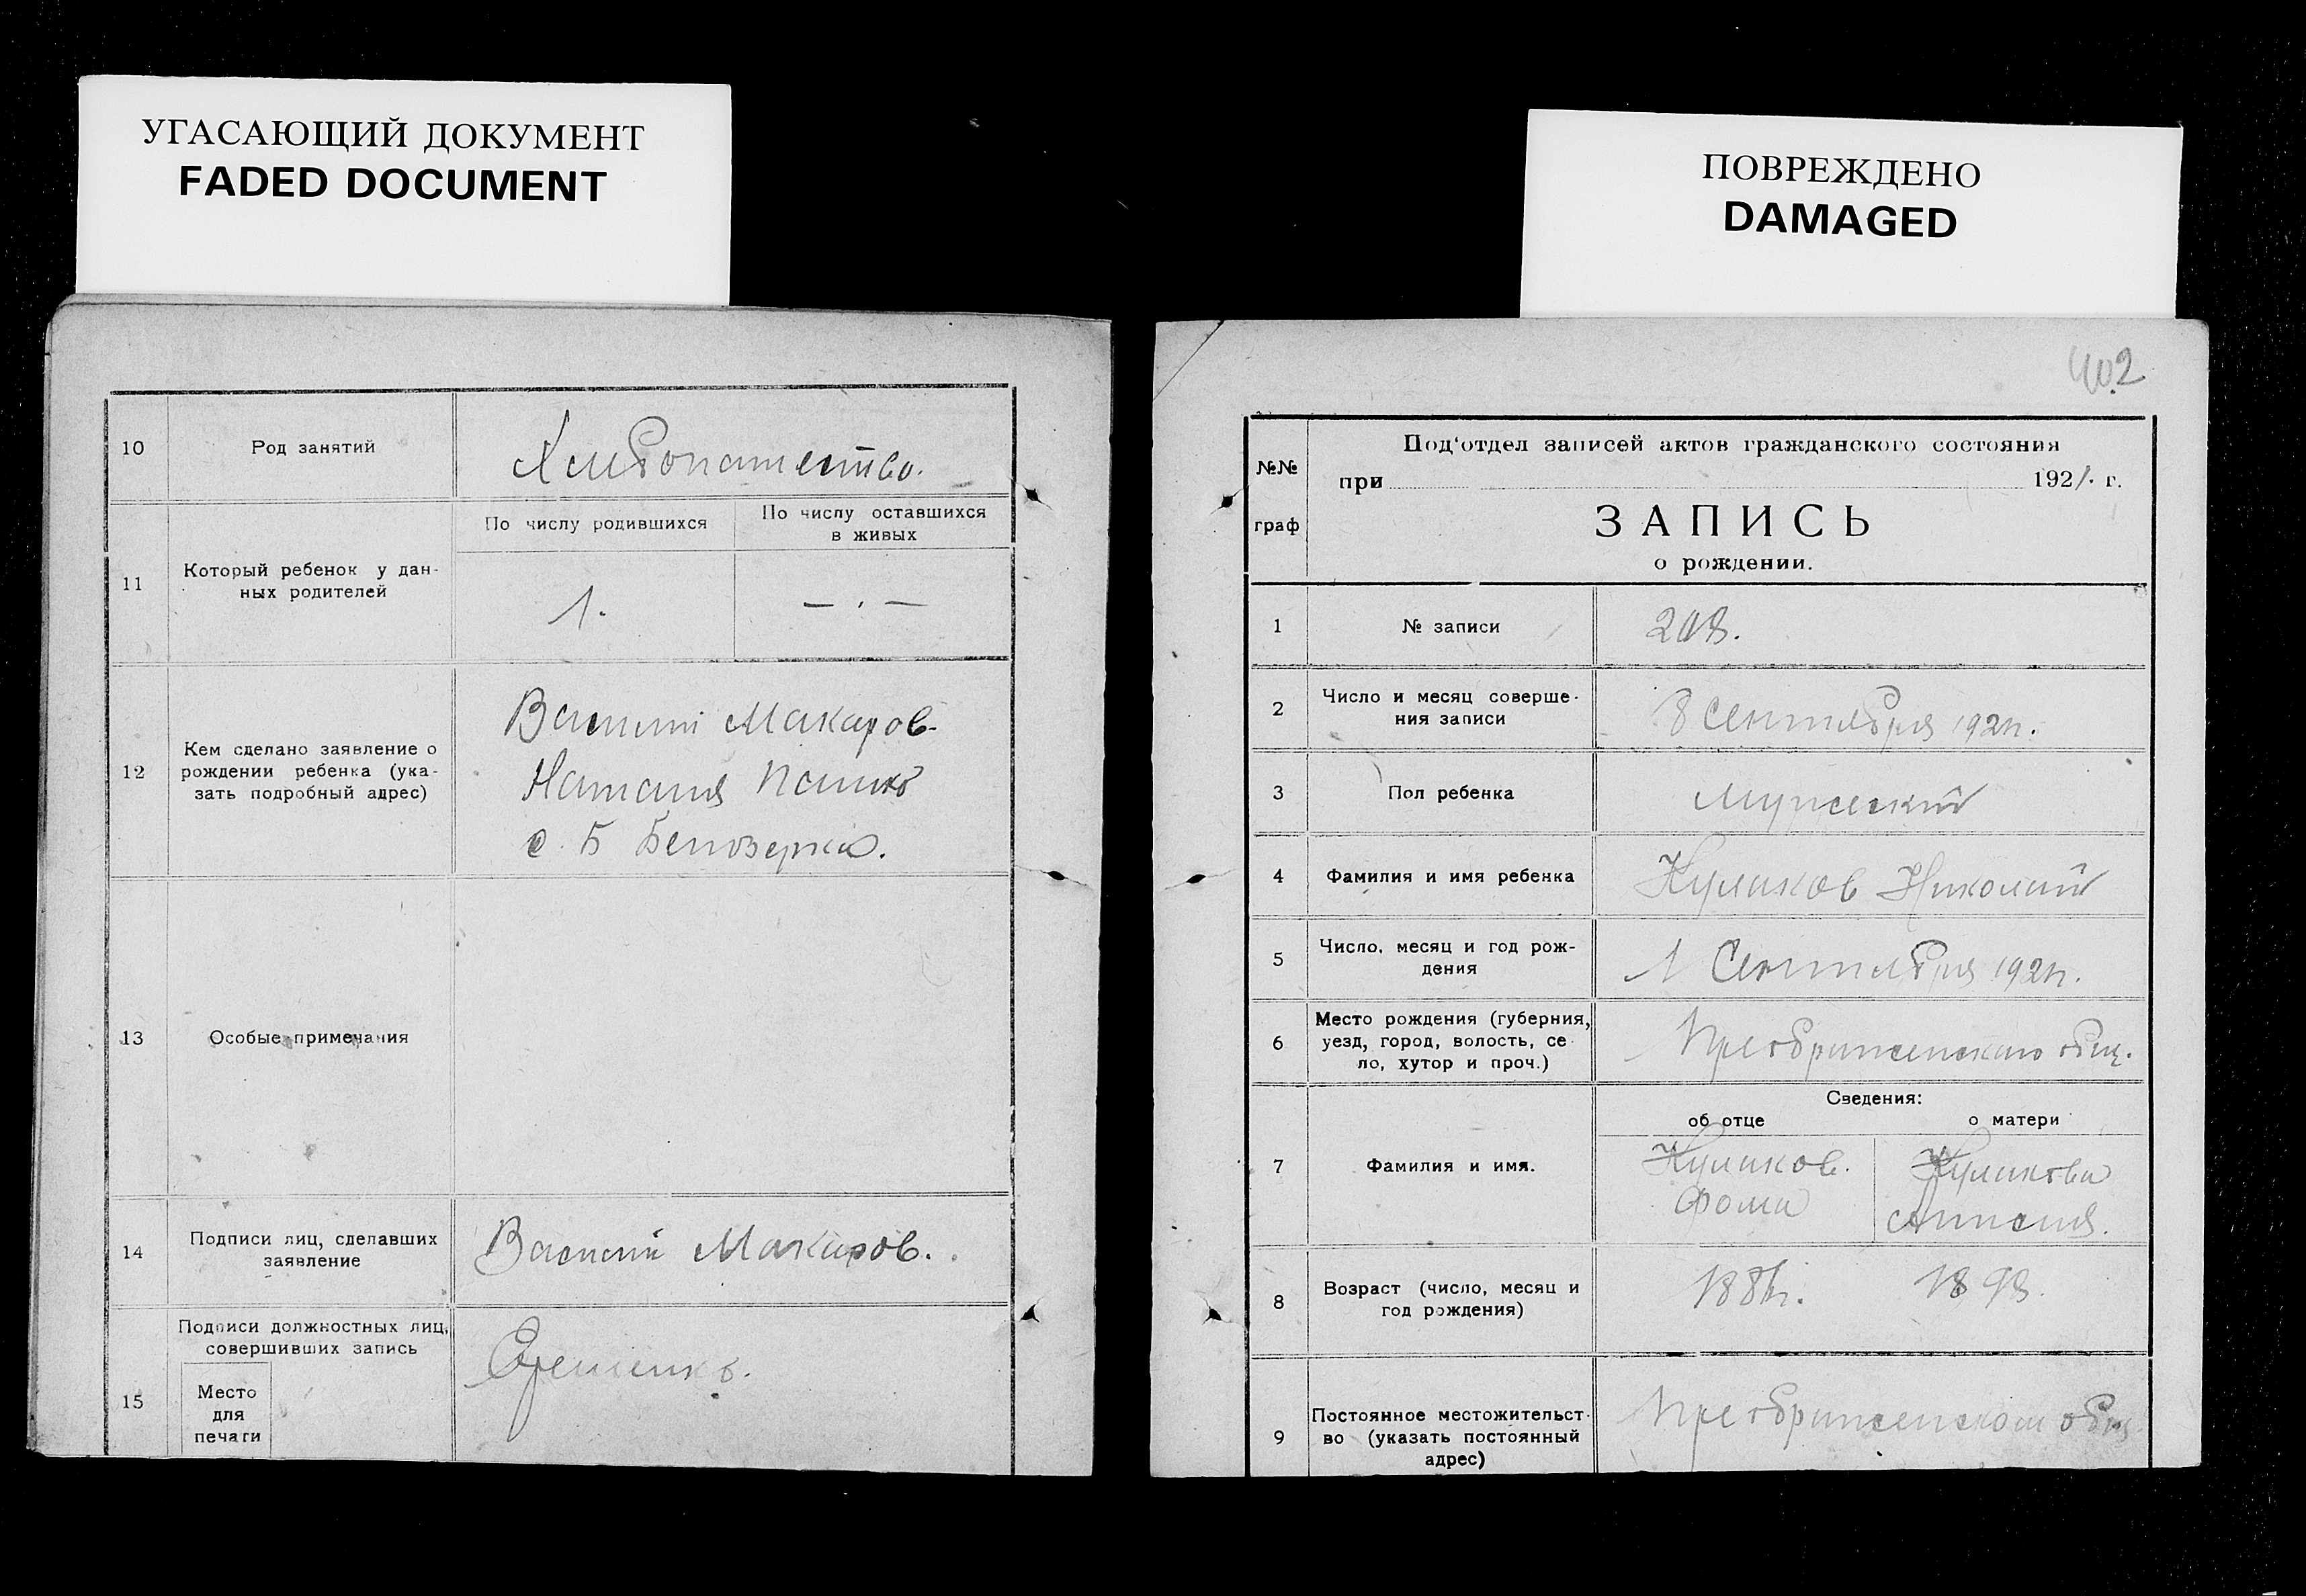 УГАСАЮЩИЙ ДОКУМЕНТ
FADED DOCUMENT
10 Род занятий Хлебопашество.
11 Который ребенок у дан-
ных родителей
По числу родившихся
По числу оставшихся
в живых
1. — . —
12 Кем сделано заявление о
рождении ребенка (ука-
зать подробный адрес)
Василий Макаров
Наталия
с. Б Белозерка.
13 Особые примечания
14 Подписи лиц, сделавших
заявление
Василий Макаров.
15 Подписи должностных лиц,
совершивших запись
Место
для
печати
ПОВРЕЖДЕНО
DAMAGED
402
№№
граф
Под'отдел записей актов гражданского состояния
при 1921. г.
ЗАПИСЬ
о рождении.
1 № записи 208.
2 Число и месяц соверше-
ния записи
8 Сентября 1921г.
3 Пол ребенка мужеский
4 Фамилия и имя ребенка Куликов Николай
5 Число, месяц и год рож-
дения
1 Сентября 1921г.
6 Место рождения (губерния,
уезд, город, волость, се-
ло, хутор и проч.)
Преображенского общ.
Сведения:
об отце о матери
7 Фамилия и имя.
Куликов. Фома
Куликова
8 Возраст (число, месяц и
год рождения)
1893.
9 Постоянное местожительст-
во (указать постоянный
адрес)
Преображенском общ